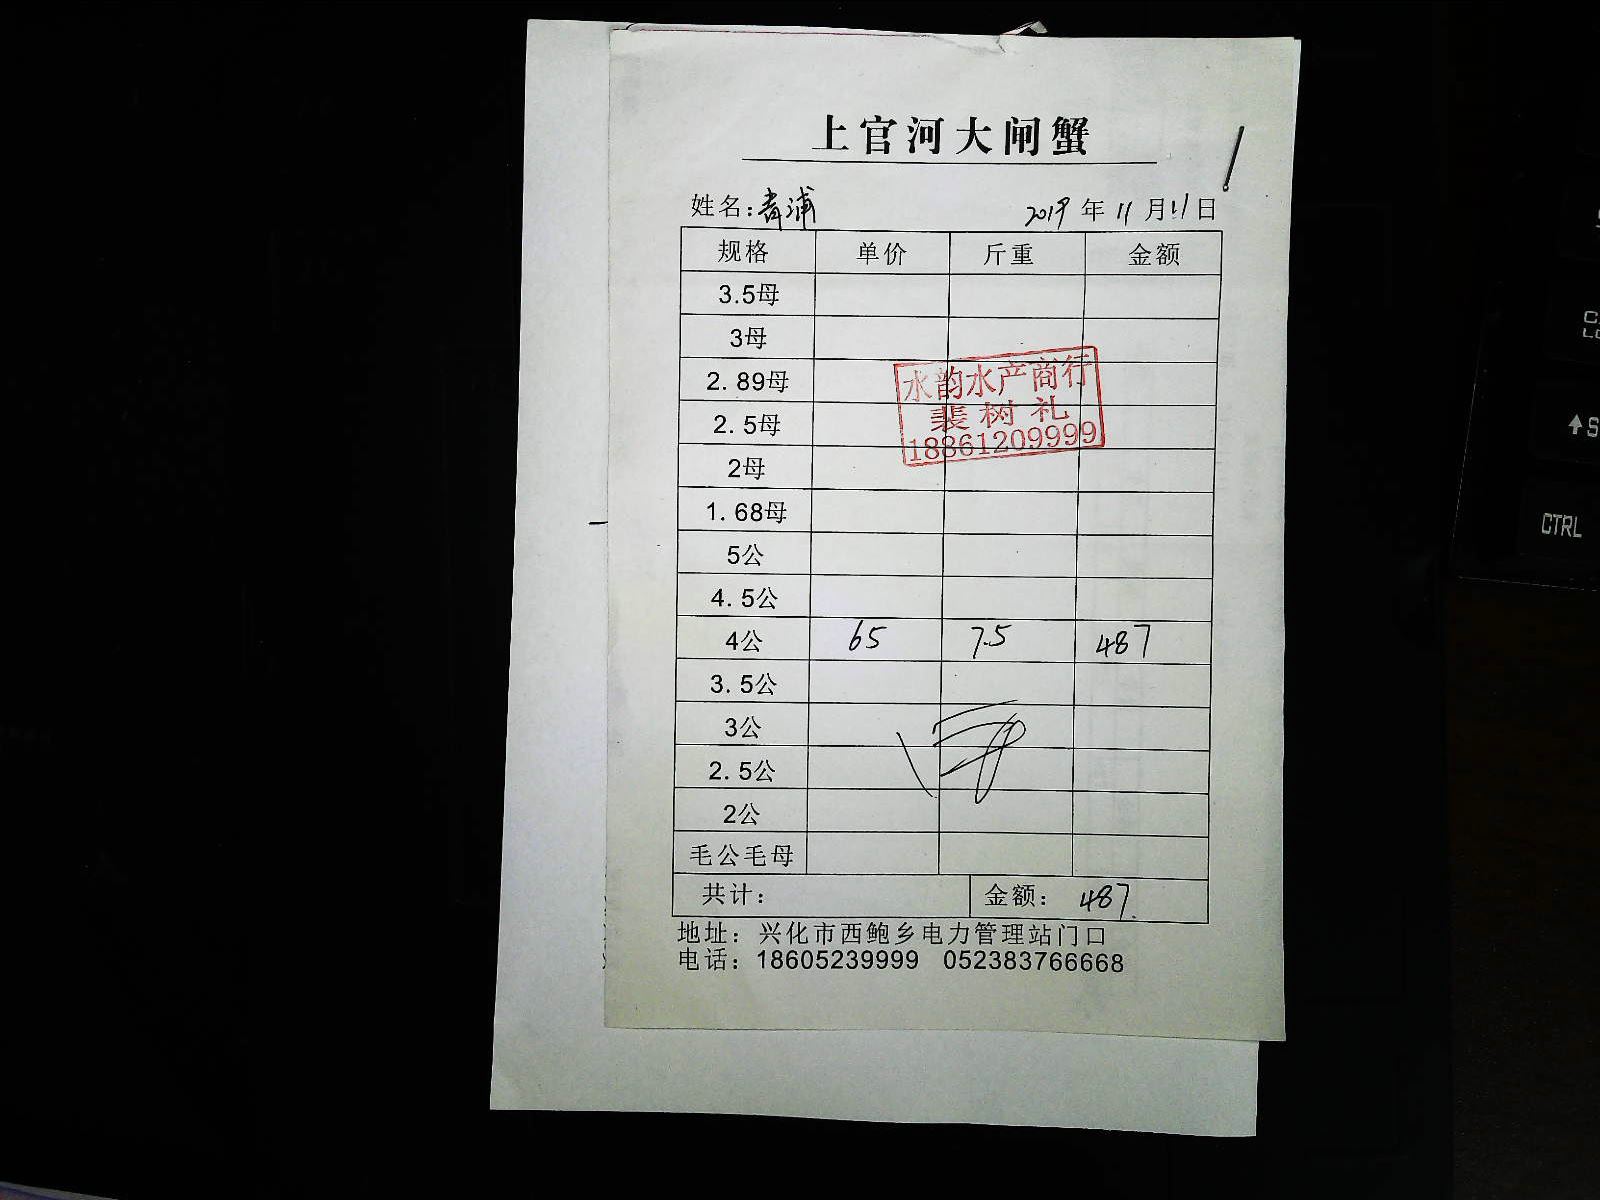 上官河大闸蟹
姓名：青浦 2019年11月11日
规格 单价 斤重 金额
3.5母
3母
2.89母
2.5母
2母
1.68母
5公
4.5公
4公 65 7.5 487
3.5公
3公
2.5公
2公
毛公毛母
共计： 金额：487.
地址：兴化市西鲍乡电力管理站门口
电话：18605239999 052383766668
水韵水产商行
裴树礼
18861209999
CTRL